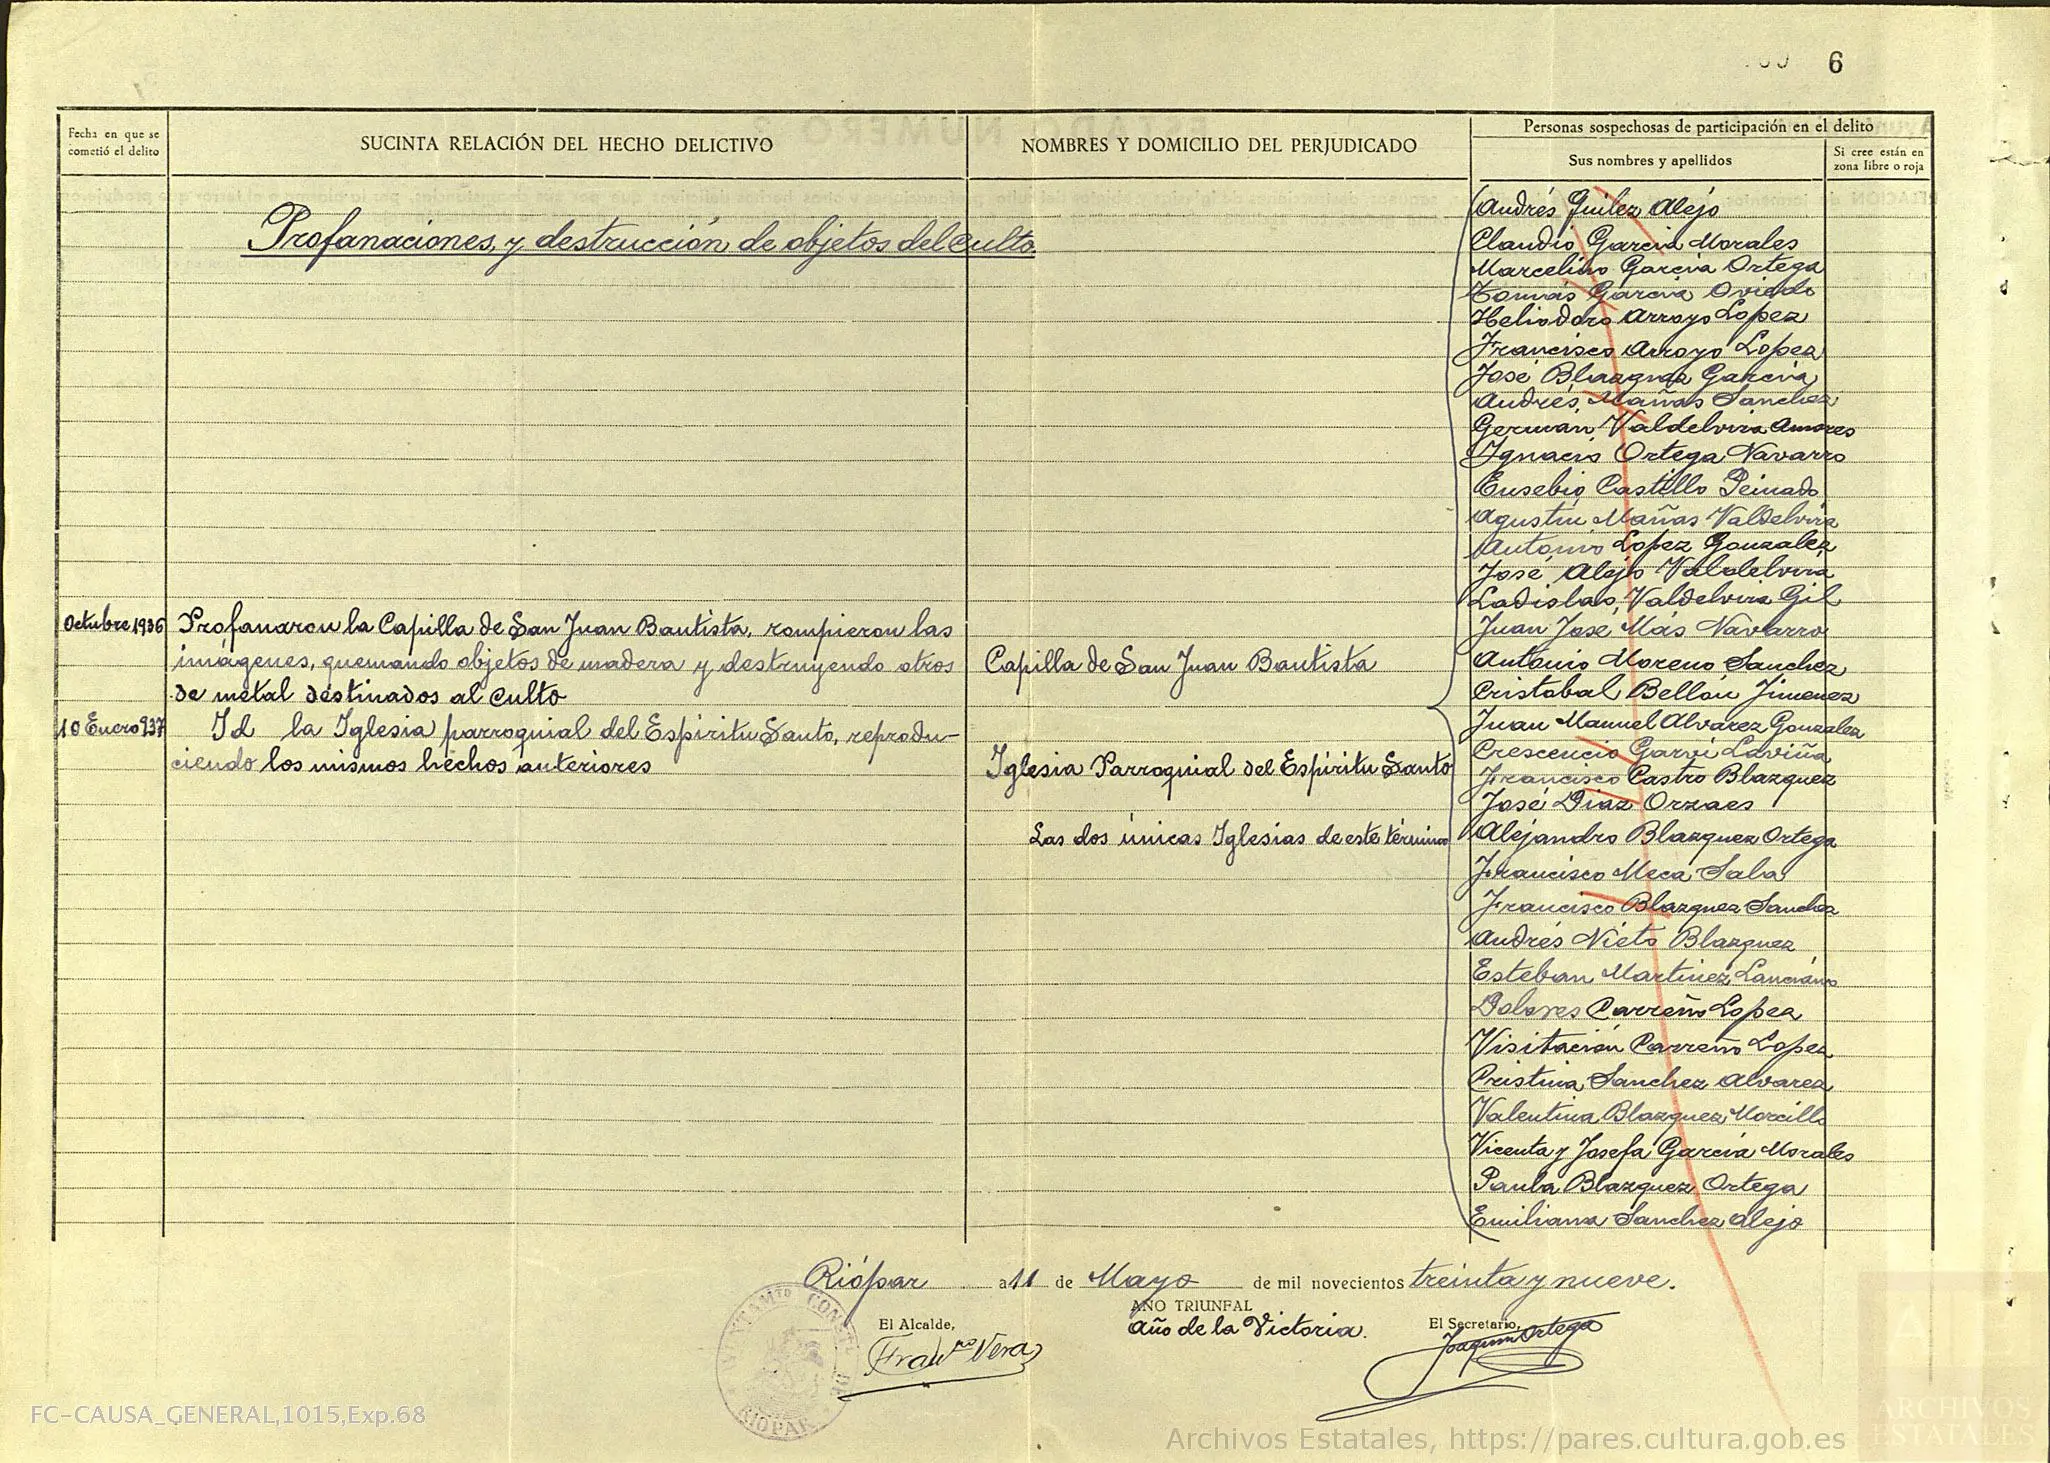 6
Fecha en que se
cometió el delito
SUCINTA RELACIÓN DEL HECHO DELICTIVO
NOMBRES Y DOMICILIO DEL PERJUDICADO
Personas sospechosas de participación en el delito
Sus nombres y apellidos
Si cree están en
zona libre o roja
Profanaciones, y destrucción de objetos del culto.
Andrés Quilez Alejo
Claudio Garcia Morales
Marcelino Garcia Ortega
Tomás Garcia Oviedo
Heliodoro Arroyo Lopez
Francisco Arroyo Lopez
José Blazquez Garcia
Andrés Mañas Sanchez
German Valdelvira Amores
Ignacio Ortega Navarro
Eusebio Castillo Peinado
Agustin Mañas Valdelvira
Antonio Lopez Gonzalez
José Alejo Valdelvira
Ladislao Valdelvira Gil
Juan José Más Navarro
Antonio Moreno Sanchez
Cristobal Bellón Jimenez
Juan Manuel Alvarez Gonzalez
Crescencio Garvi Laviña
Francisco Castro Blazquez
José Diaz Orzaes
Alejandro Blazquez Ortega
Francisco Meca Saba
Francisco Blazquez Sanchez
Andrés Nieto Blazquez
Esteban Martinez Lanciano
Dolores Carreño Lopez
Visitación Carreño Lopez
Cristina Sanchez Alvarez
Valentina Blazquez Morcillo
Vicenta y Josefa Garcia Morales
Paula Blazquez Ortega
Emiliana Sanchez Alejo
Octubre 1936
Profanaron la Capilla de San Juan Bautista, rompieron las
imágenes, quemando objetos de madera y destruyendo otros
de metal destinados al culto
Capilla de San Juan Bautista
10 Enero 937
Id la Iglesia parroquial del Espiritu Santo, reprodu-
ciendo los mismos hechos anteriores
Iglesia Parroquial del Espíritu Santo
Las dos únicas Iglesias de este término
Riópar a 11 de Mayo de mil novecientos treinta y nueve.
AÑO TRIUNFAL
Año de la Victoria.
El Alcalde,
Franco Vera
El Secretario,
Joaquin Ortega
AYUNTAMTO CONSTL DE RIOPAR
FC-CAUSA_GENERAL,1015,Exp.68
Archivos Estatales, https://pares.cultura.gob.es
ARCHIVOS
ESTATALES